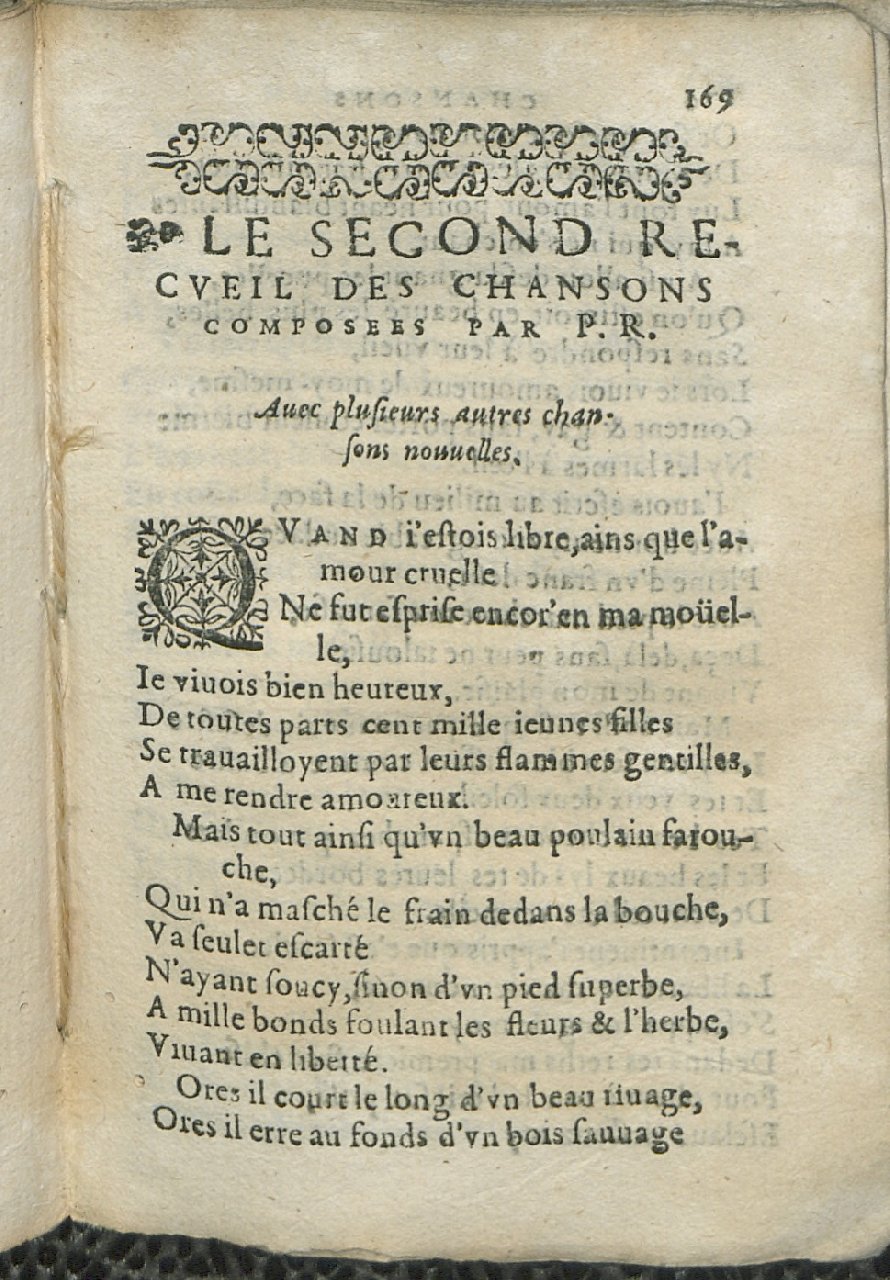 169
LE SECOND RE-
CVEIL DES CHANSONS
COMPOSEES PAR P. R.
Auec pluſieurs autres chan-
ſons nouuelles.
QVAND i'eſtois libre, ains que l'a-
mour cruelle
Ne fut eſpriſe encor' en ma moüel-
le,
Ie viuois bien heureux,
De toutes parts cent mille ieunes filles
Se trauailloyent par leurs flammes gentilles,
A me rendre amoureux.
Mais tout ainſi qu'vn beau poulain farou-
che,
Qui n'a maſché le frain dedans la bouche,
Va ſeulet eſcarté
N'ayant ſoucy, ſinon d'vn pied ſuperbe,
A mille bonds foulant les fleurs & l'herbe,
Viuant en liberté.
Ores il court le long d'vn beau riuage,
Ores il erre au fonds d'vn bois ſauuage